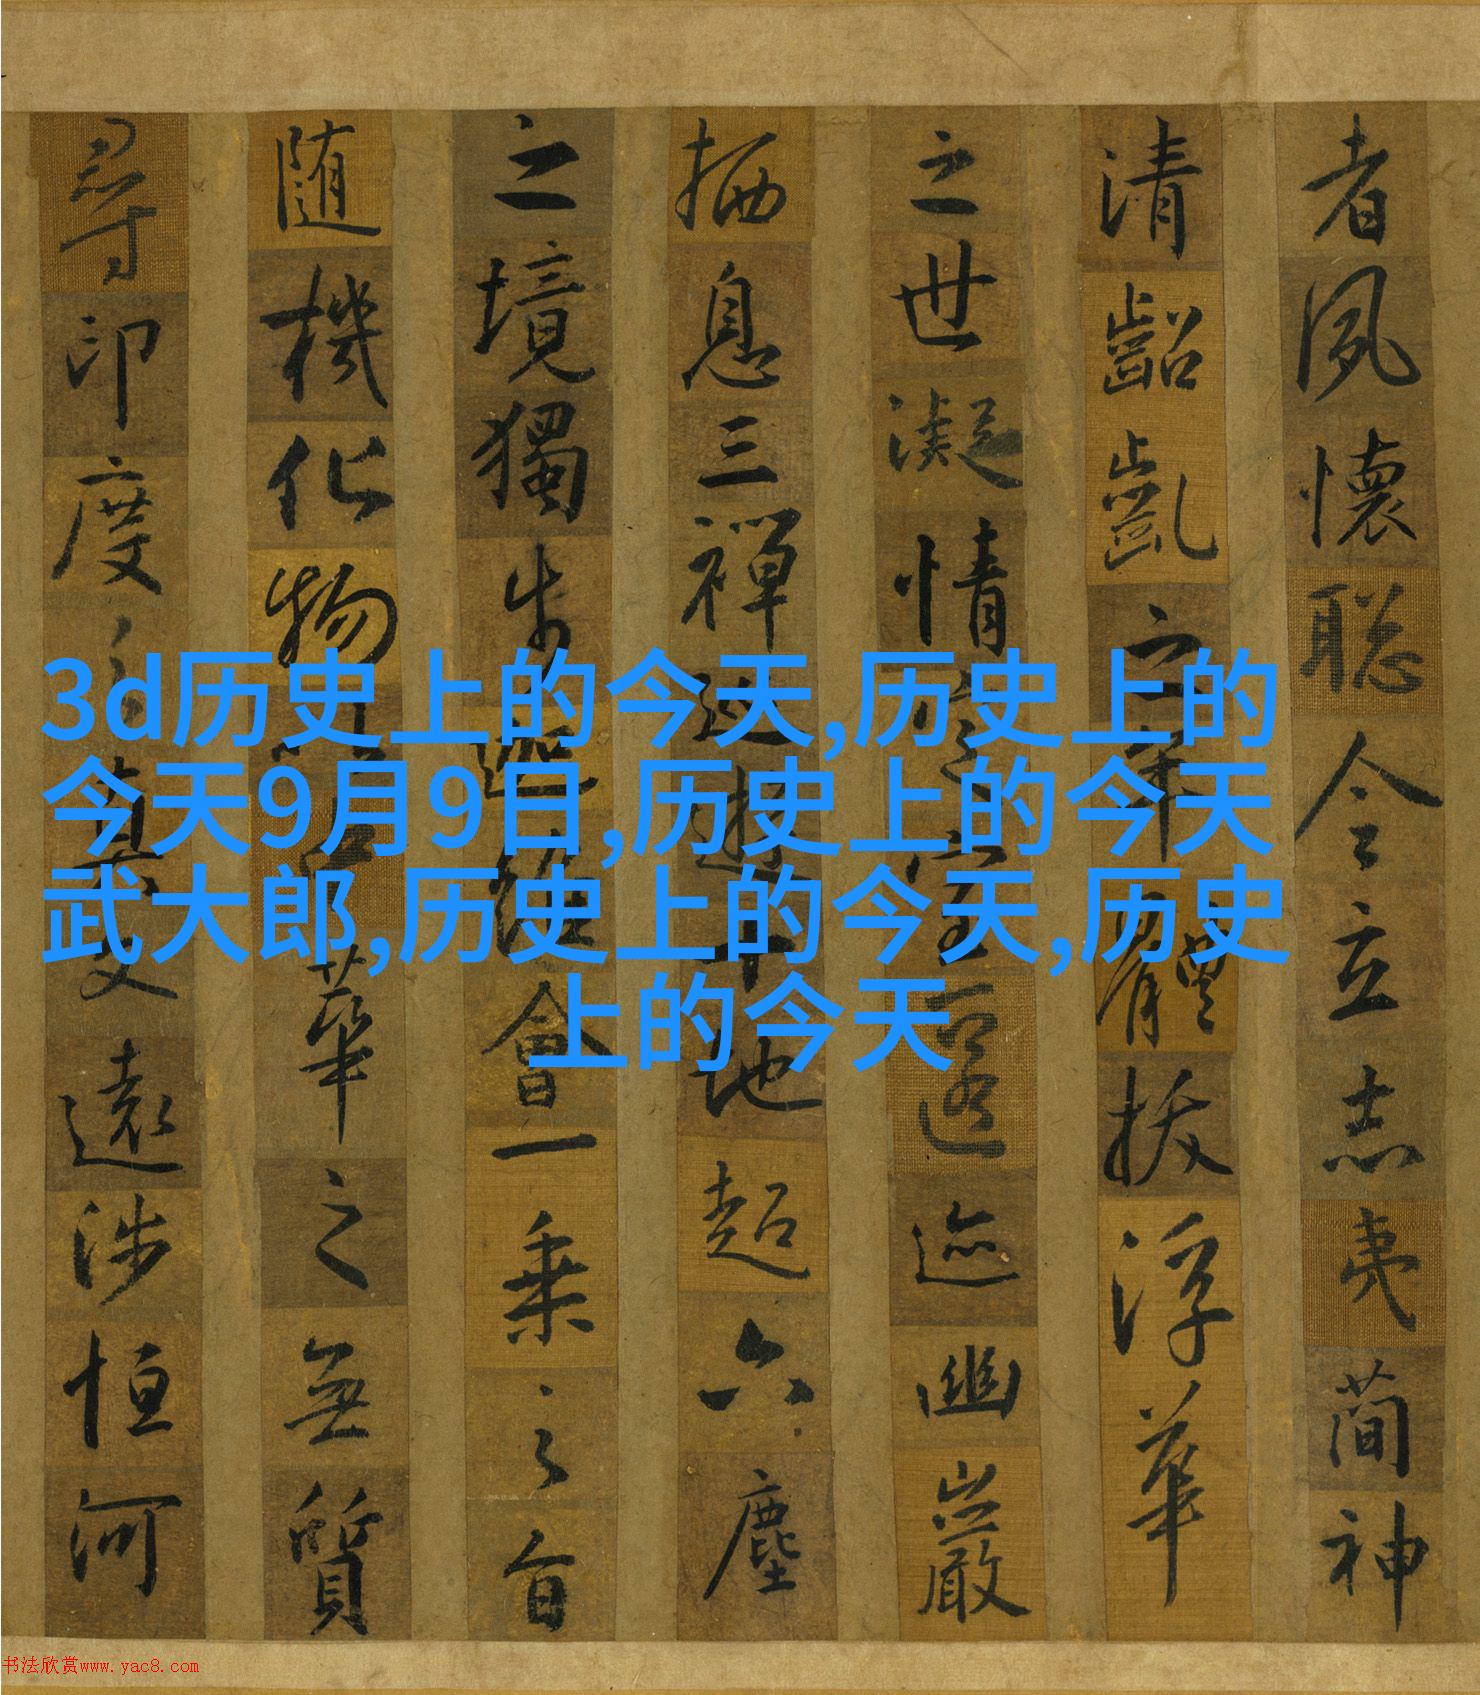 3d历史上的今天,历史上的
今天9月9日,历史上的今天
武大郎,历史上的今天,历史
上的今天
者夙懷聡令立志夷簡神
清齠齔之年體拔浮華
之世凝情定室匿迹幽巖
栖息三禪巡遊十地超六塵
之境獨步迦維會一乘之旨
随機化物以中華之無質
尋印度之真文遠涉恒河
书法欣赏www.yac8.com